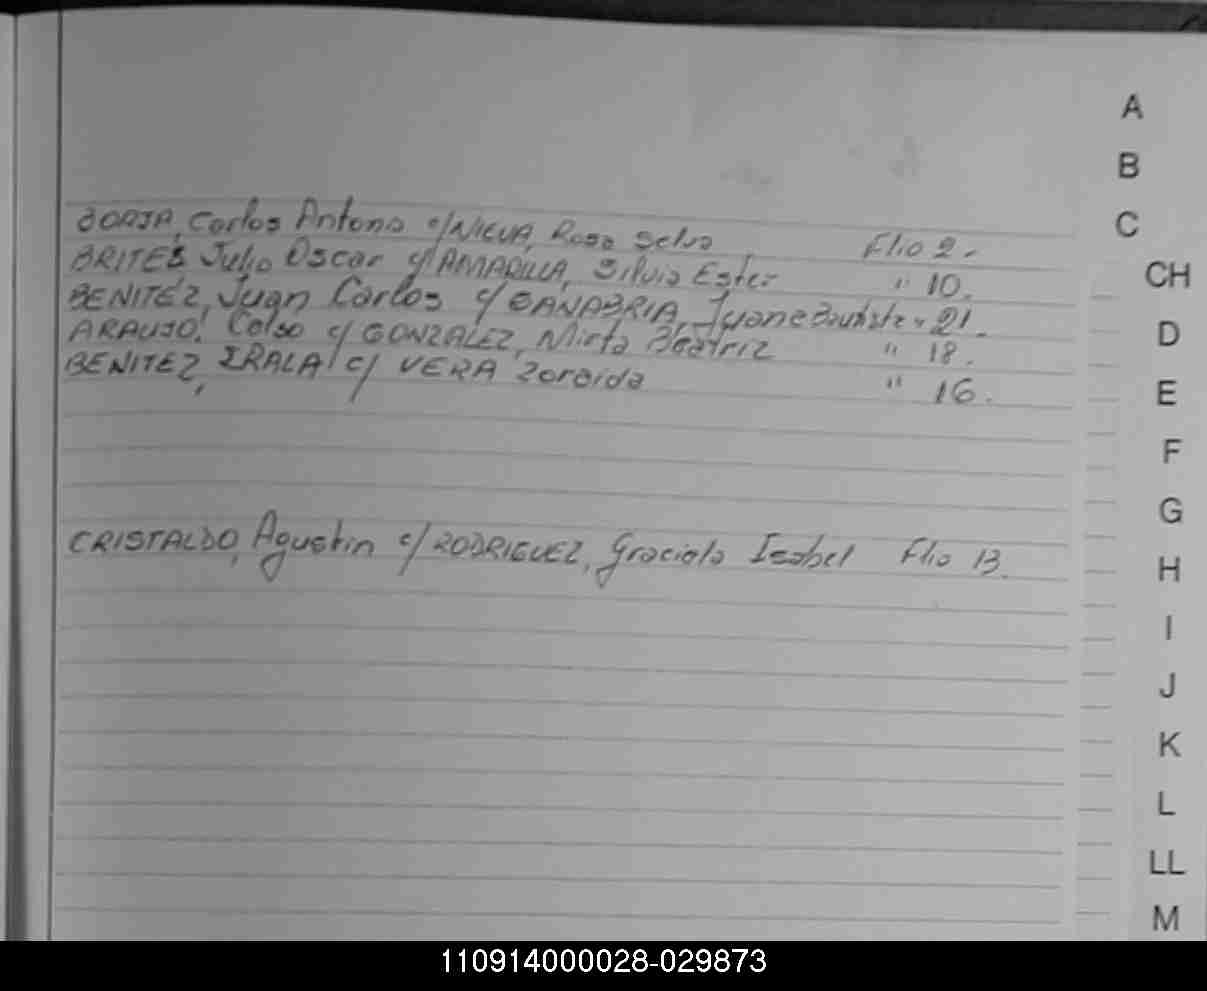 BORJA, Carlos Antonio c/ NIEVA, Rosa Selva Flio 2.
BRITES Julio Oscar c/ AMARILLA, Silvia Ester " 10.
BENITEZ, Juan Carlos c/ SANABRIA, Juana Bautista " 21.
ARAUJO, Celso c/ GONZALEZ, Mirta Beatriz " 18.
BENITEZ, IRALA c/ VERA Zoraida " 16.
CRISTALDO, Agustin c/ RODRIGUEZ, Graciela Isabel Flio 13.
A
B
C
CH
D
E
F
G
H
I
J
K
L
LL
M
110914000028-029873